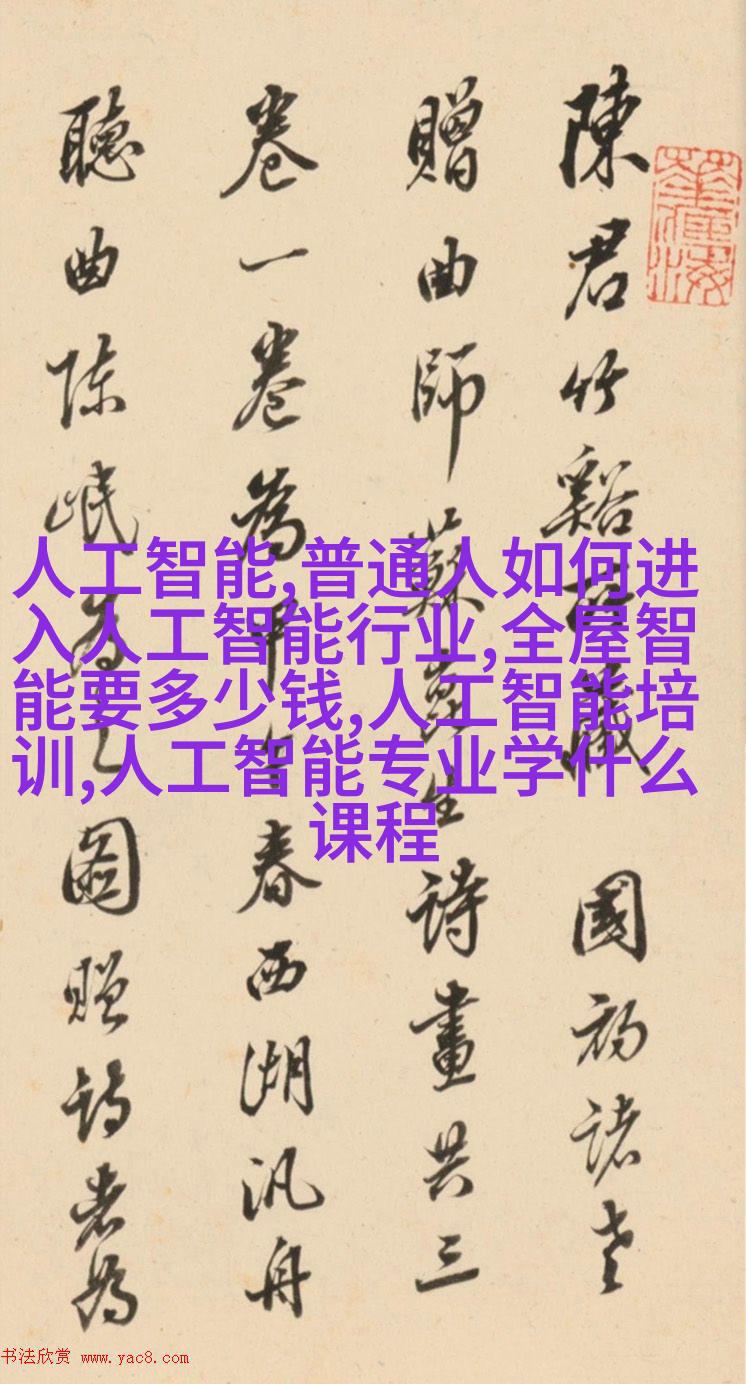 陳君竹谿廿藏 國初諸老
贈曲師蘇崑生詩畫共三
卷一卷為甲午春西湖汎舟
聽曲陈岷為之圖贈詩者為
人工智能,普通人如何进
入人工智能行业,全屋智
能要多少钱,人工智能培
训,人工智能专业学什么
课程
书法欣赏 www.yac8.com